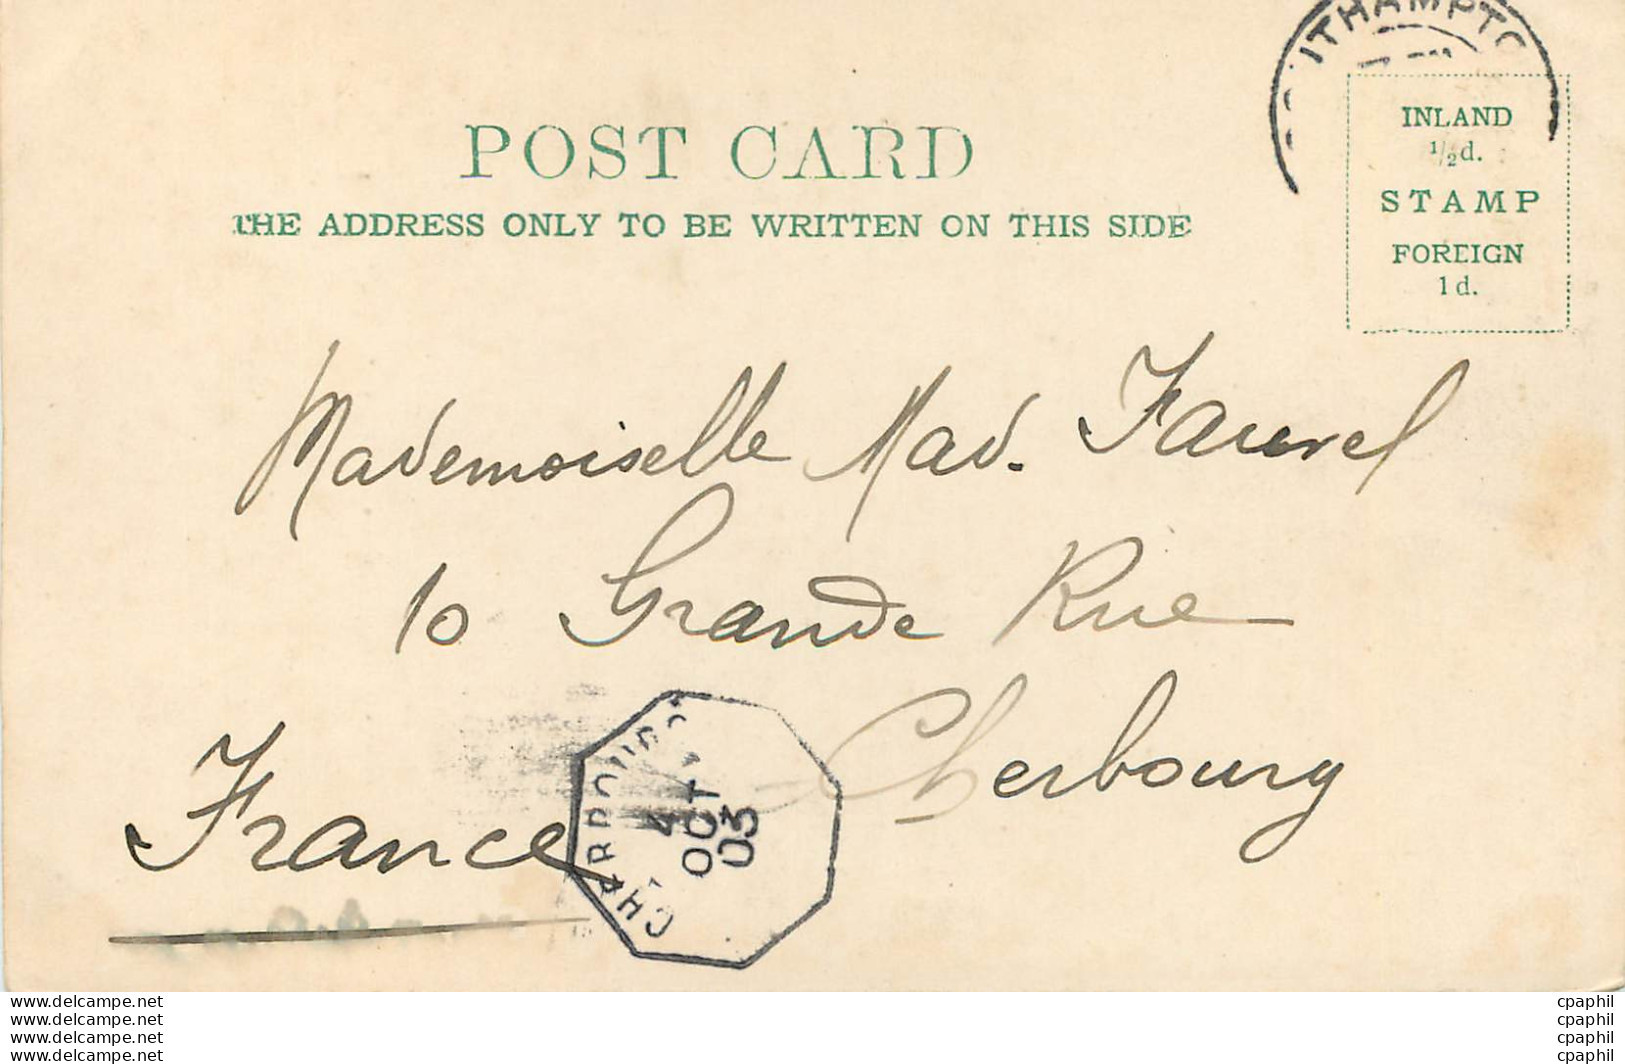 SOUTHAMPTO
POST CARD
THE ADDRESS ONLY TO BE WRITTEN ON THIS SIDE
INLAND
½d.
STAMP
FOREIGN
1d.
Mademoiselle Mad. Faurel
10 Grande Rue
Cherbourg
France
CHERBOURG
4
OCT
03
www.delcampe.net
www.delcampe.net
www.delcampe.net
www.delcampe.net
cpaphil
cpaphil
cpaphil
cpaphil